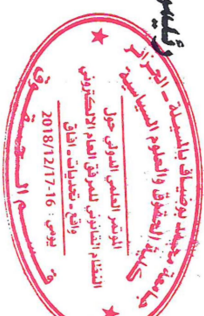 رئيس
جامعة محمد بوضياف بالمسيلة - الجزائر
كلية الحقوق والعلوم السياسية
المؤتمر العلمي الدولي حول
النظام القانوني للمرفق العام الالكتروني
واقع - تحديات - آفاق
يومي: 16-2018/12/17
قسم الحقوق